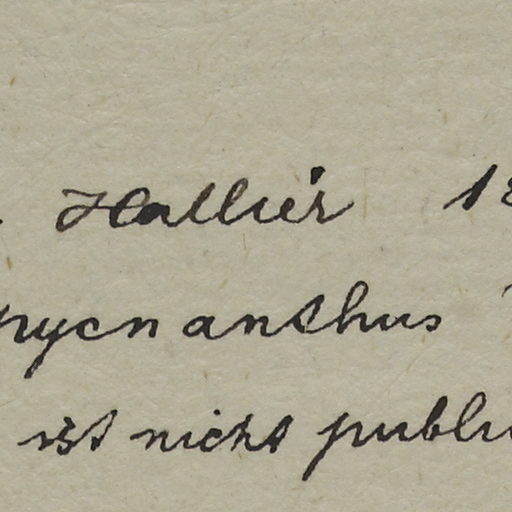 Hallier 18
pycnanthus
ist nicht publi